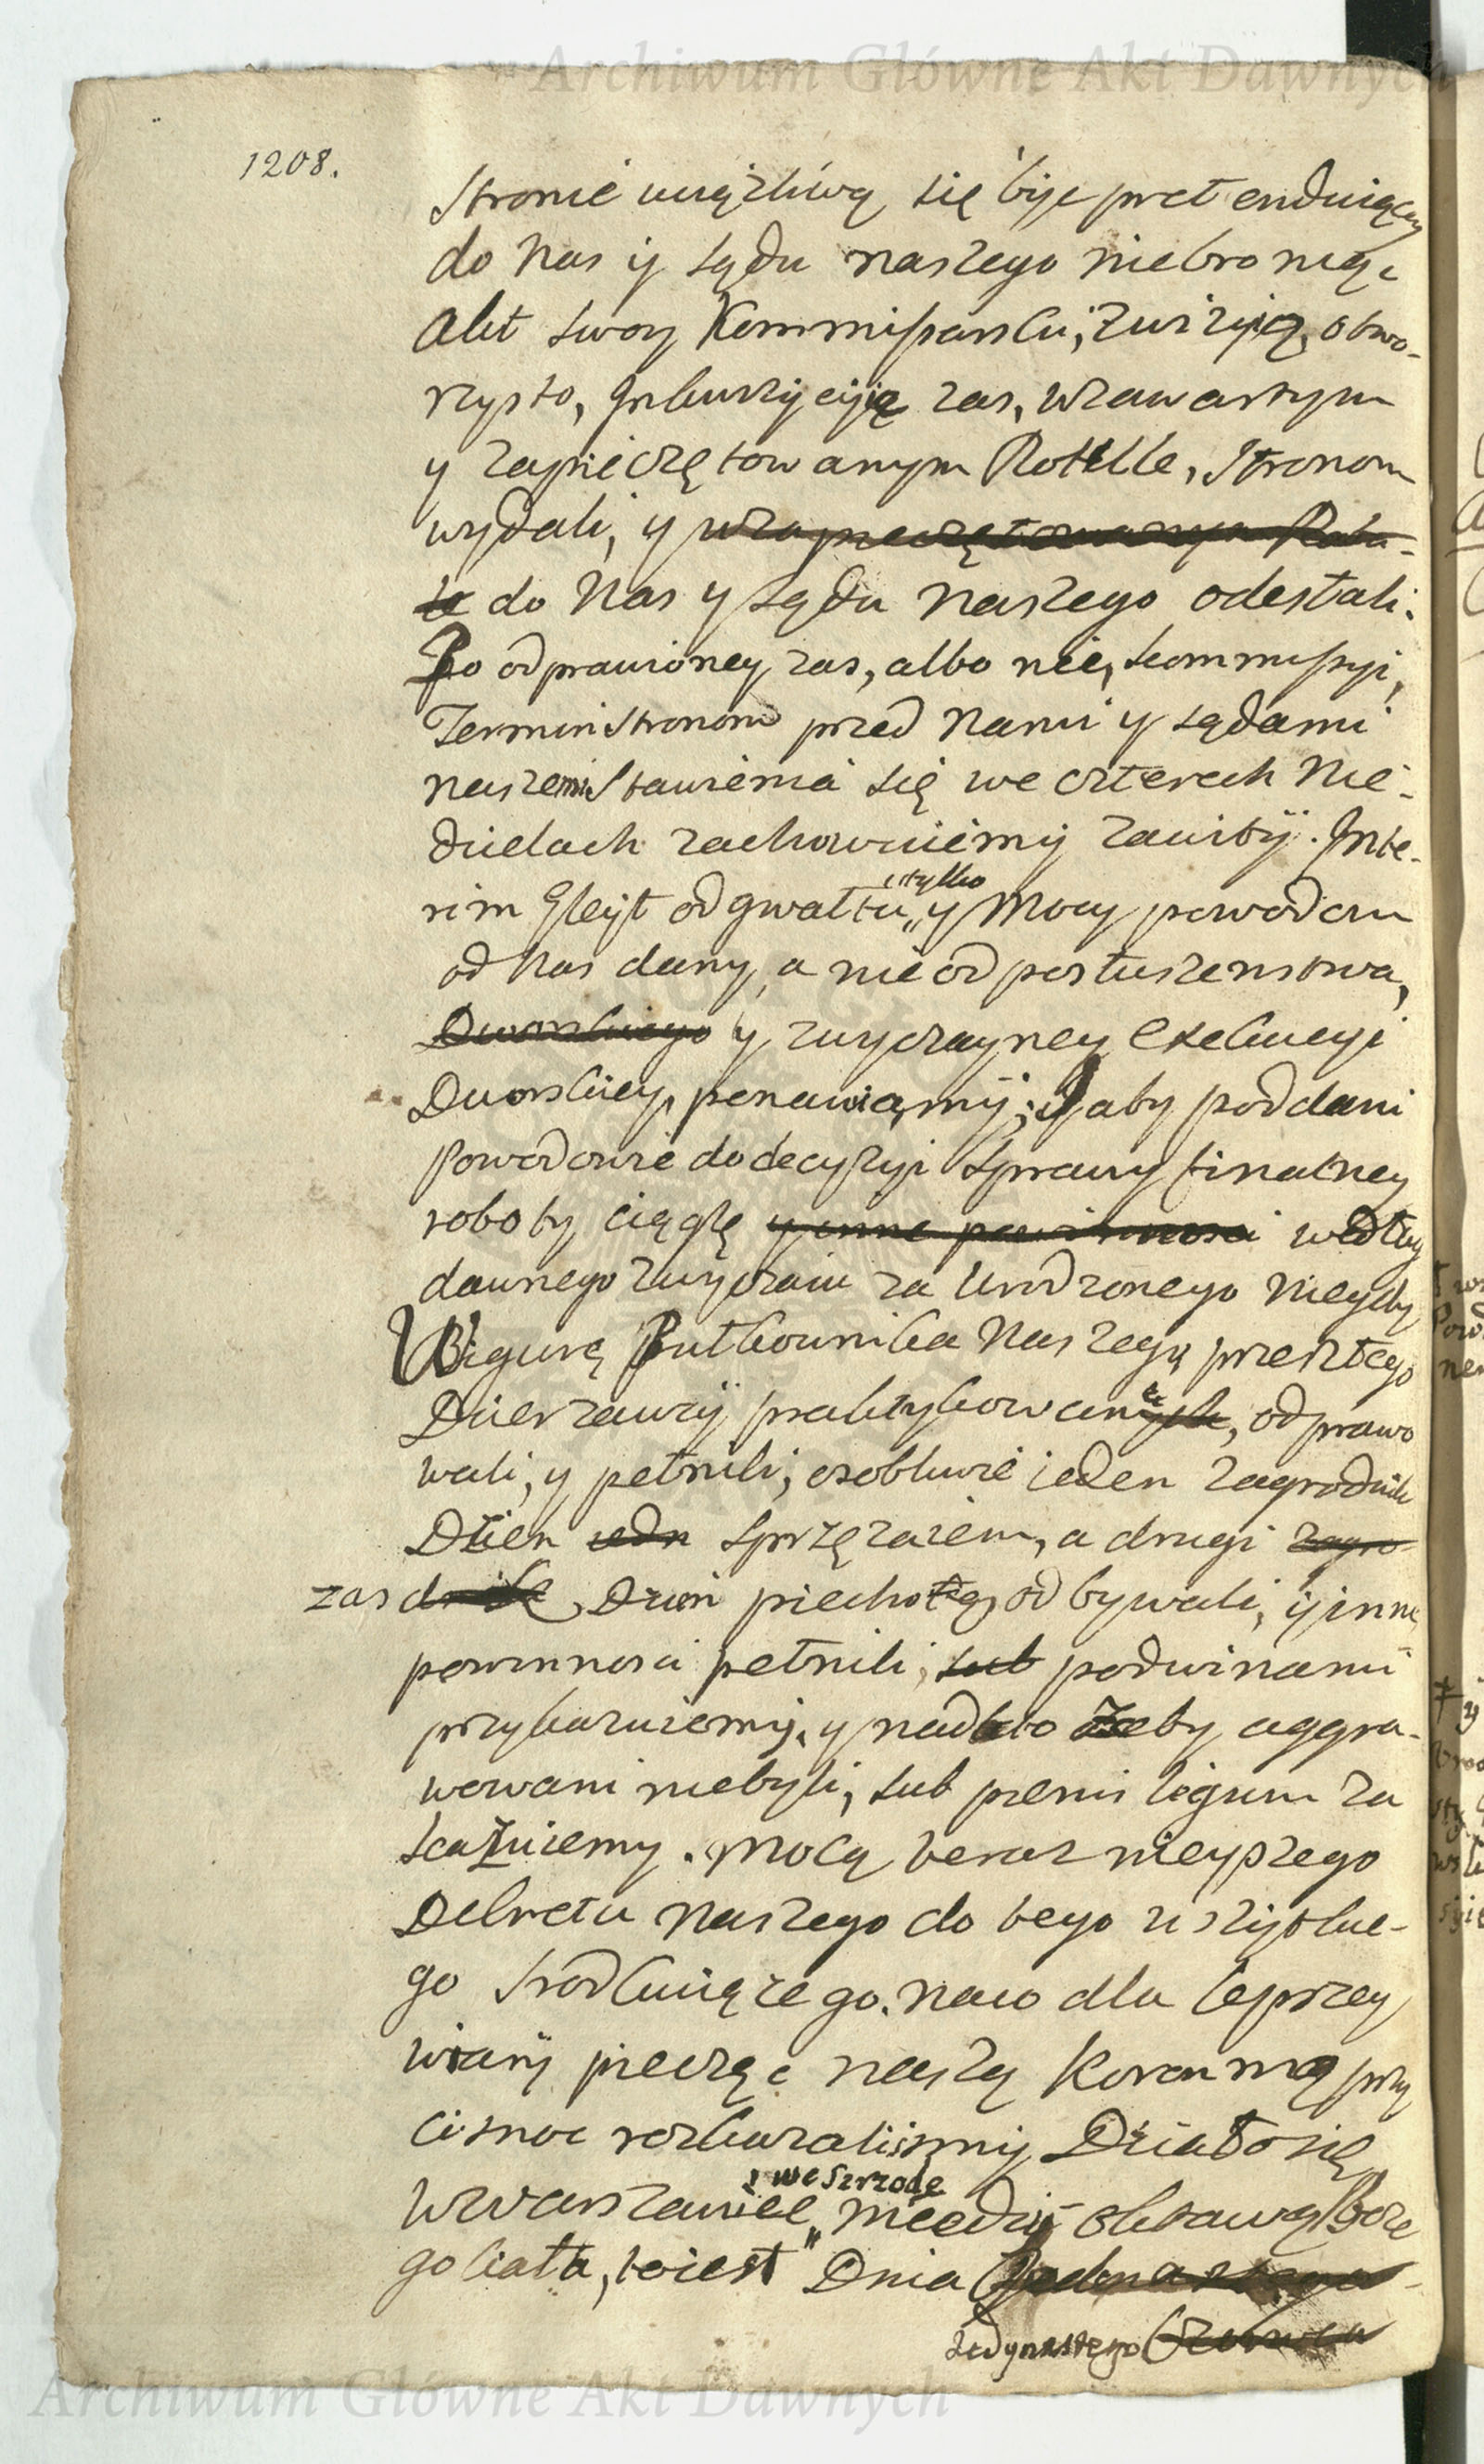 Archiwum Główne Akt Dawnych
1208.
Stronie uciążliwą się bÿc pretenduiącey
do Nas ÿ Sądu naszego niebroniąc
Akt swoy Kommissarski, Zwizÿią, otwo-
rzysto, Inkwizÿcÿią zas, wzawartym
y zapieczętowanym Rotulle, Stronom
wydali, y wzapieczętowanym Rotu-
le do Nas y Sądu Naszego odesłali.
Po odprawioney zas, albo nie, kommissyi,
Termin Stronom przed Nami y sądami
naszemi Stawienia się we czterech Nie-
dzielach zachowuiemÿ zawitÿ. Inte-
rim Gleÿt od gwałtu „ tylko y Mocy powodom
od Nas dany, a nie od posłuszenstwa,
Dworskiego y zwyczayney Exekucyi
Dworskiey, ponawiamÿ; Y aby poddani
Powodowie do decyzyi Sprawy finalney
roboty ciągłę y inne powinnosci według
dawnego zwyczaiu za Urodzonego Niegdy
Bigurę Pułkownika Naszego przeszłego
Dzierzawcÿ praktykowane, odprawo
wali, y pełnili, osobliwie ieden zagrodnik
Dzień iedn Sprzęzaiem, a drugi zagro-
zas dnik Dzień piechotą odbywali, ÿ inne
powinnosci pełnili, sub pod winami
przykazuiemÿ, y nadto żeby aggra-
wowani niebyli, sub pænis legum za
kazuiemy. Mocą teraz nieyszego
Dekretu Naszego do tego wszÿstkie-
go Srodkuiącego. Na co dla lepszey
wiarÿ pieczęć naszą Koronną przy
cisnąc rozkazalismÿ Działo się
w Warszawie „ we Szrzodę Miedzÿ Oktawą Boze
go Ciała, to iest Dnia Jedenastego
Jedynastego Czerwca
Archiwum Główne Akt Dawnych